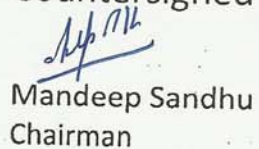 Countersigned
Mandeep Sandhu
Chairman